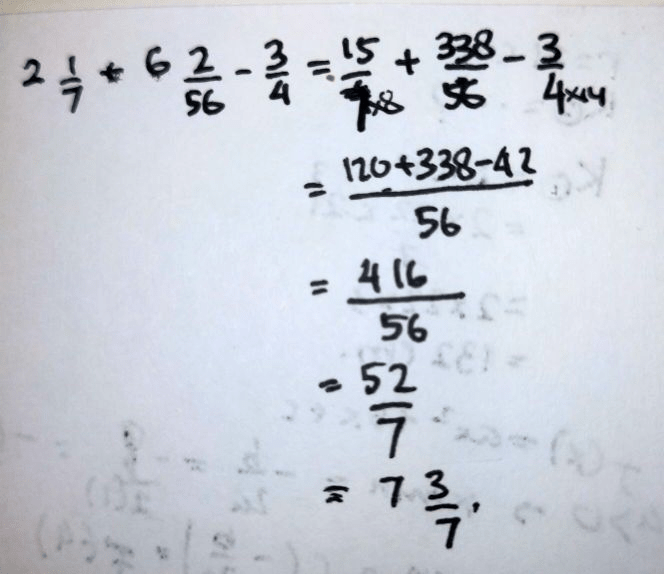 2 1/7 + 6 2/56 - 3/4 = 15/7×8 + 338/56 - 3/4×14
= 120+338-42/56
= 416/56
= 52/7
= 7 3/7.